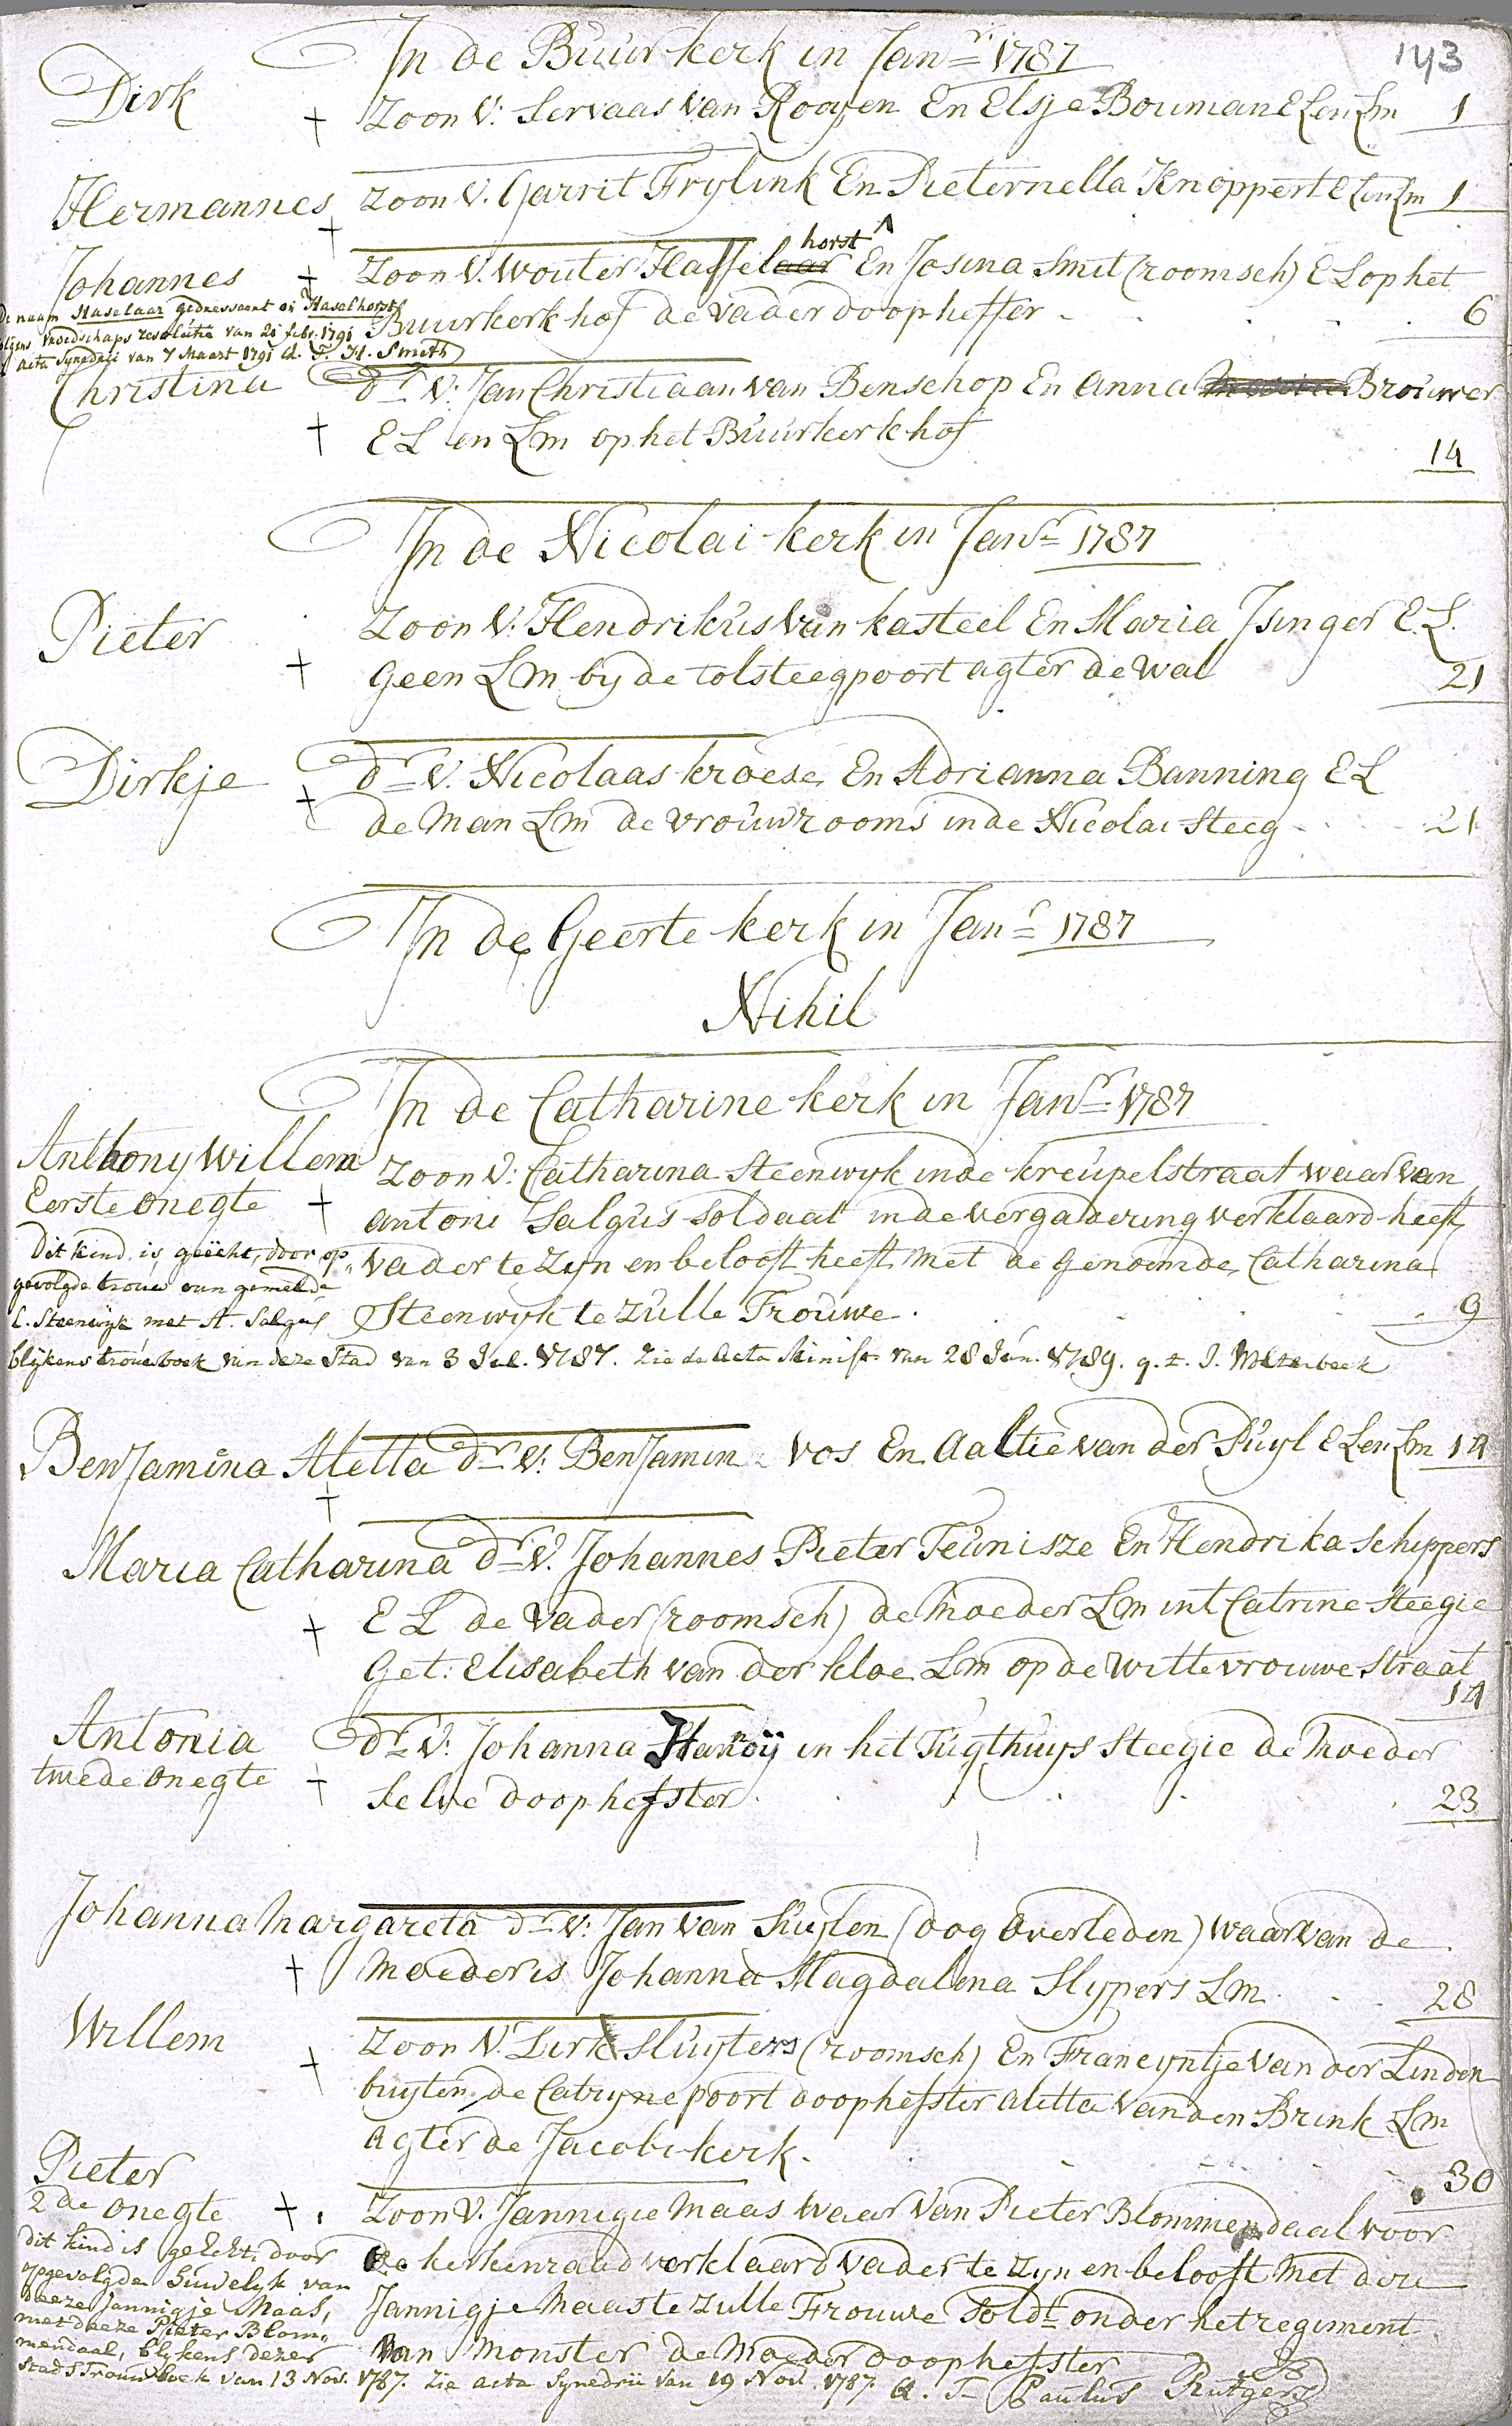 143
In de Buurkerk in Janr. 1787
Dirk
Zoon V: Servaas van Rooyen En Elsje Bouman E L en Lm 1
Hermannes
Zoon V. Garrit Frylink En Pieternella Knoppert E L en Lm 1
Johannes
Zoon V. Wouter Hasselaar horst En Josina Smit (roomsch) E L op het
Buurkerkhof de vader doopheffer 6
De naam Haselaar gedresseert in Haselhorst
volgens Vroedschaps resolutie van 21 febr. 1791
acta Synedrii van 7 Maart 1791 H. Smeth
Christina
dr V: Jan Christiaan van Benschop En Anna Brouwer
E L en Lm op het Buurkerkhof
14
In de Nicolai kerk in Janr 1787
Pieter
Zoon V: Hendrikus van kasteel En Maria Isinger E. L.
Geen Lm by de tolsteegpoort agter de wal 21
Dirkje
dr V. Nicolaas kroese En Adrianna Banning E L
de man Lm de vrouw rooms in de Nicolai Steeg 21
In de Geerte kerk in Janr 1787
Nihil
In de Catharine kerk in Janr 1787
Anthony Willem
Eerste onegte
Zoon V: Catharina Steenwyk in de kreupelstraat waar van
antoni Salgus soldaat in de vergadering verklaard heeft
vader te zyn en belooft heeft met de Genoemde Catharina
Steenwyk te zulle Trouwe 9
Dit kind is geëcht, door op
gevolgde trouw van gemelde
C. Steenwyk met A. Salgus
blijkens trouwboek van deze Stad van 3 Jul. 1787. zie de Acta Minist. van 28 Jun. 1789. q. t. J.
Benjamina Aletta dr V: Benjamin Vos En Aaltie van der Puyl E L en Lm 14
Maria Catharina dr V. Johannes Pieter Teunisze En Hendrika Schippers
E L de vader (roomsch) de moeder Lm int Catrine Steegie
Get: Elisabeth van der kloe Lm op de Wittevrouwe Straat
14
Antonia
twede onegte
dr V: Johanna Hanoÿ in het Tugthuys Steegie de moeder
Selve doophefster 23
Johanna Margareta dr V: Jan van Suylen (dog overleden) waar van de
moeder is Johanna Magdalena Slypers Lm 28
Willem
Zoon V. Dirk Sluyters (roomsch) En Francyntje van der Linden
buyten de Catryne poort doophefster Aletta van den Brink Lm
Agter de Jacobi kerk. 30
Pieter
2de onegte
Zoon V. Jannigie Maas waar van Pieter Blommendaal voor
de kerkenraad verklaard vader te zyn en belooft met die
Jannigje Maas te zulle Trouwe Soldt onder het regiment
van Monster de moeder doophefster
dit kind is geëcht door
opgevolgde huwelyk van
deeze Jannigje Maas,
met deeze Pieter Blom„
mendaal, blykens dezer
Stads Trouwboek van 13 Nov. 1787. Zie acta Synedrii van 19 Nov. 1787. Q. T. Paulus Rutgers